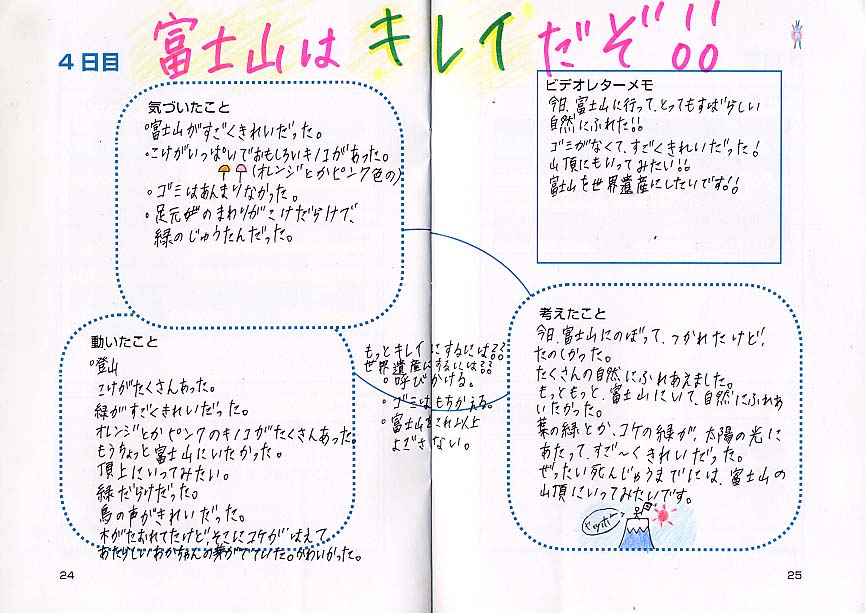 4日目
富士山はキレイだぞ!!
気づいたこと
・富士山がすごくきれいだった。
・こけがいっぱいでおもしろいキノコがあった。
(オレンジとかピンク色の)
・ゴミはあんまりなかった。
・足元のまわりがこけだらけで、
緑のじゅうたんだった。
動いたこと
・登山
こけがたくさんあった。
緑がすごくきれいだった。
オレンジとかピンクのキノコがたくさんあった。
もうちょっと富士山にいたかった。
頂上にいってみたい。
緑だらけだった。
鳥の声がきれいだった。
木がたおれてたけど、そこにコケがはえて
あたらしいあかちゃんの葉がでていた。かわいかった。
もっとキレイにするには??
世界遺産にするには??
・呼びかける。
・ゴミはもちかえる。
・富士山をこれ以上
よごさない。
ビデオレターメモ
今日、富士山に行って、とってもすばらしい
自然にふれた!!
ゴミがなくて、すごくきれいだった!
山頂にもいってみたい!!
富士山を世界遺産にしたいです!!
考えたこと
今日、富士山にのぼって、つかれたけど、
たのしかった。
たくさんの自然にふれあえました。
もっともっと、富士山にいて、自然にふれあ
いたかった。
葉の緑とか、コケの緑が、太陽の光に
あたって、すご〜くきれいだった。
ぜったい死んじゅうまでには、富士山の
山頂にいってみたいです。
ヤッホー
24
25